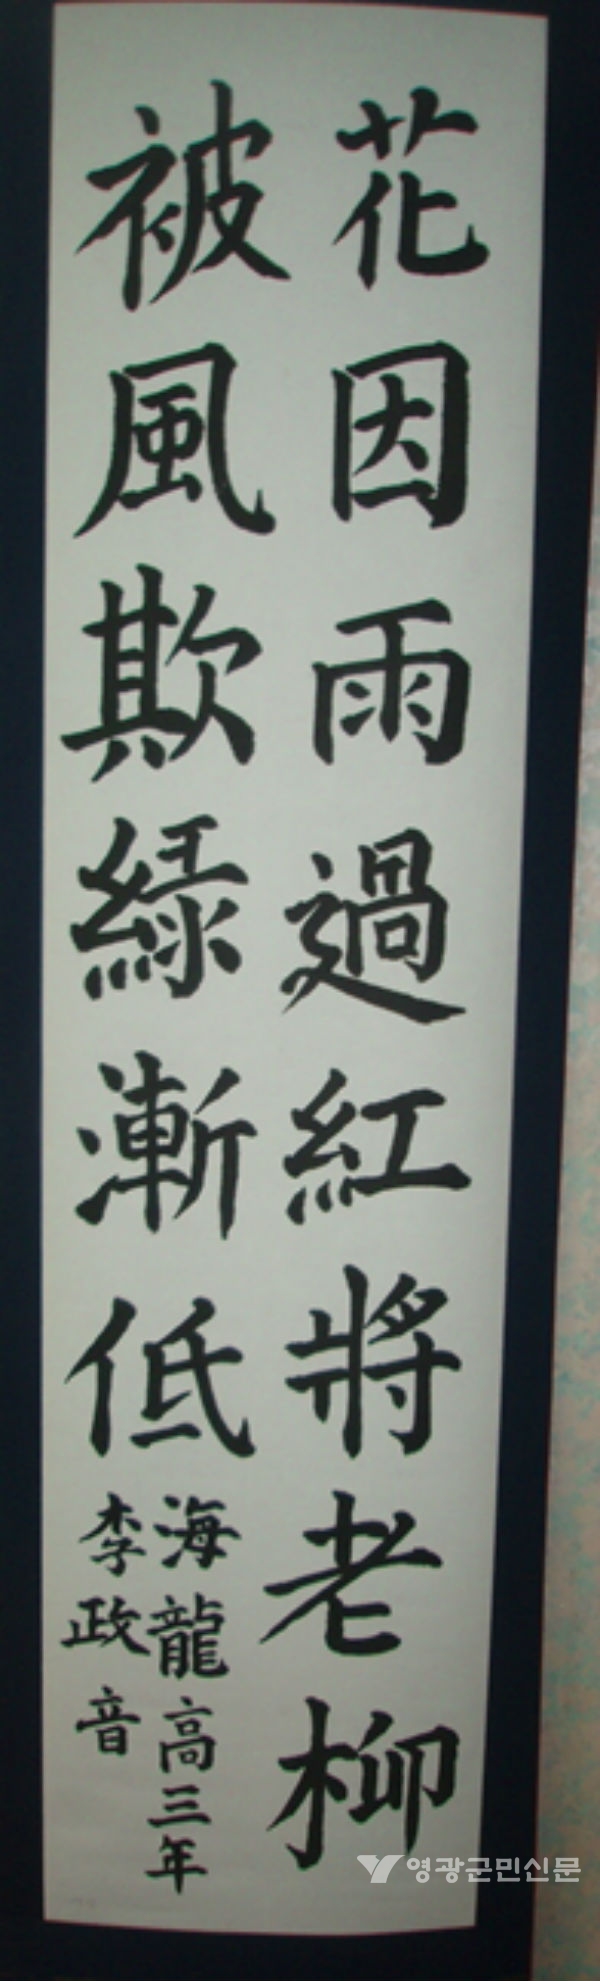 花因雨過紅將老柳
被風欺綠漸低
海龍高三年
李政音
영광군민신문